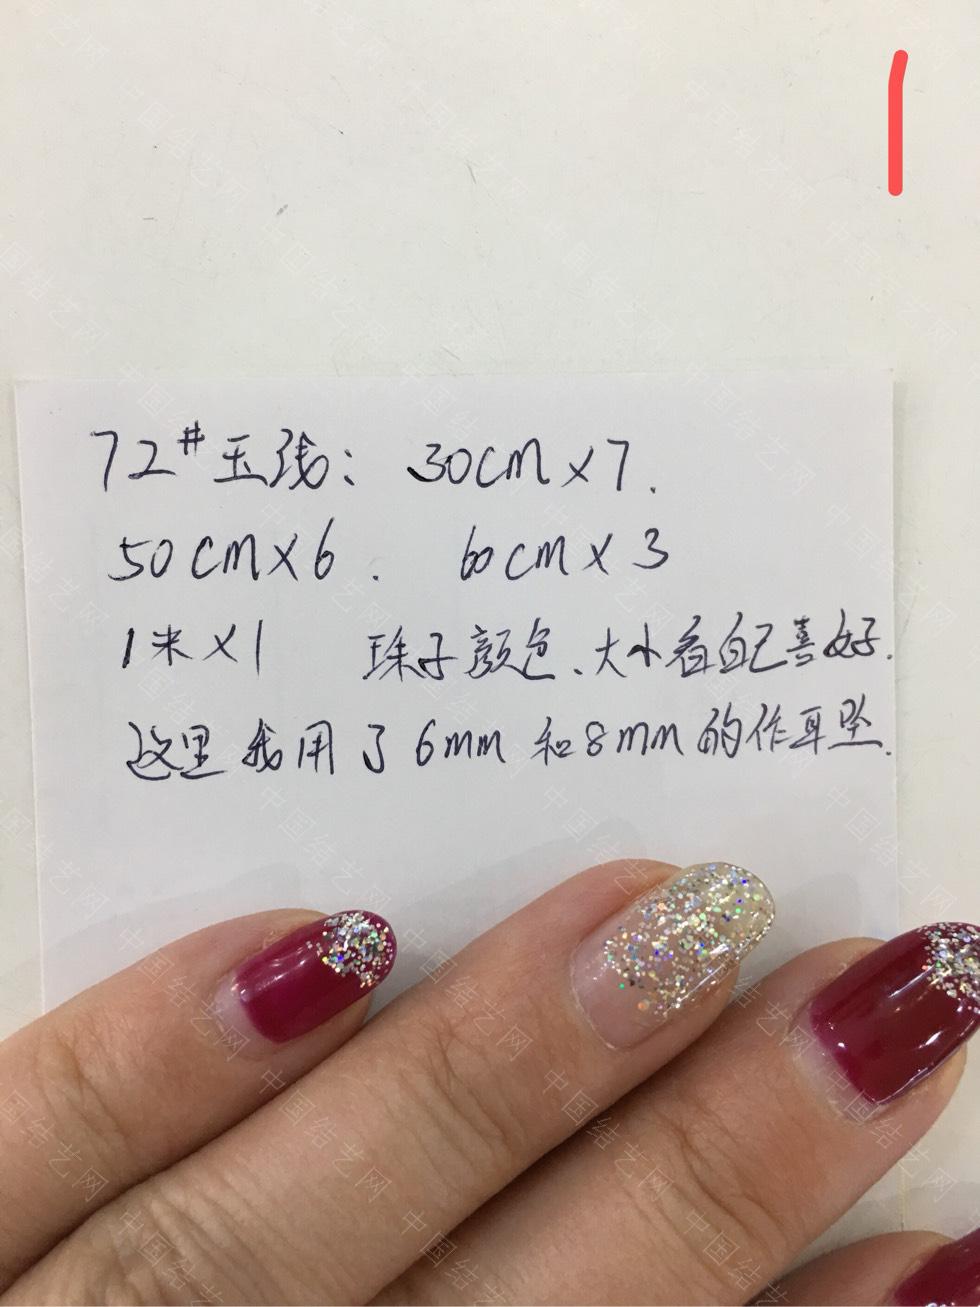 1
72#玉线：30cm×7.
50cm×6. 60cm×3
1米×1 珠子颜色、大小看自己喜好.
这里我用了6mm和8mm的作耳坠.
中国结艺网